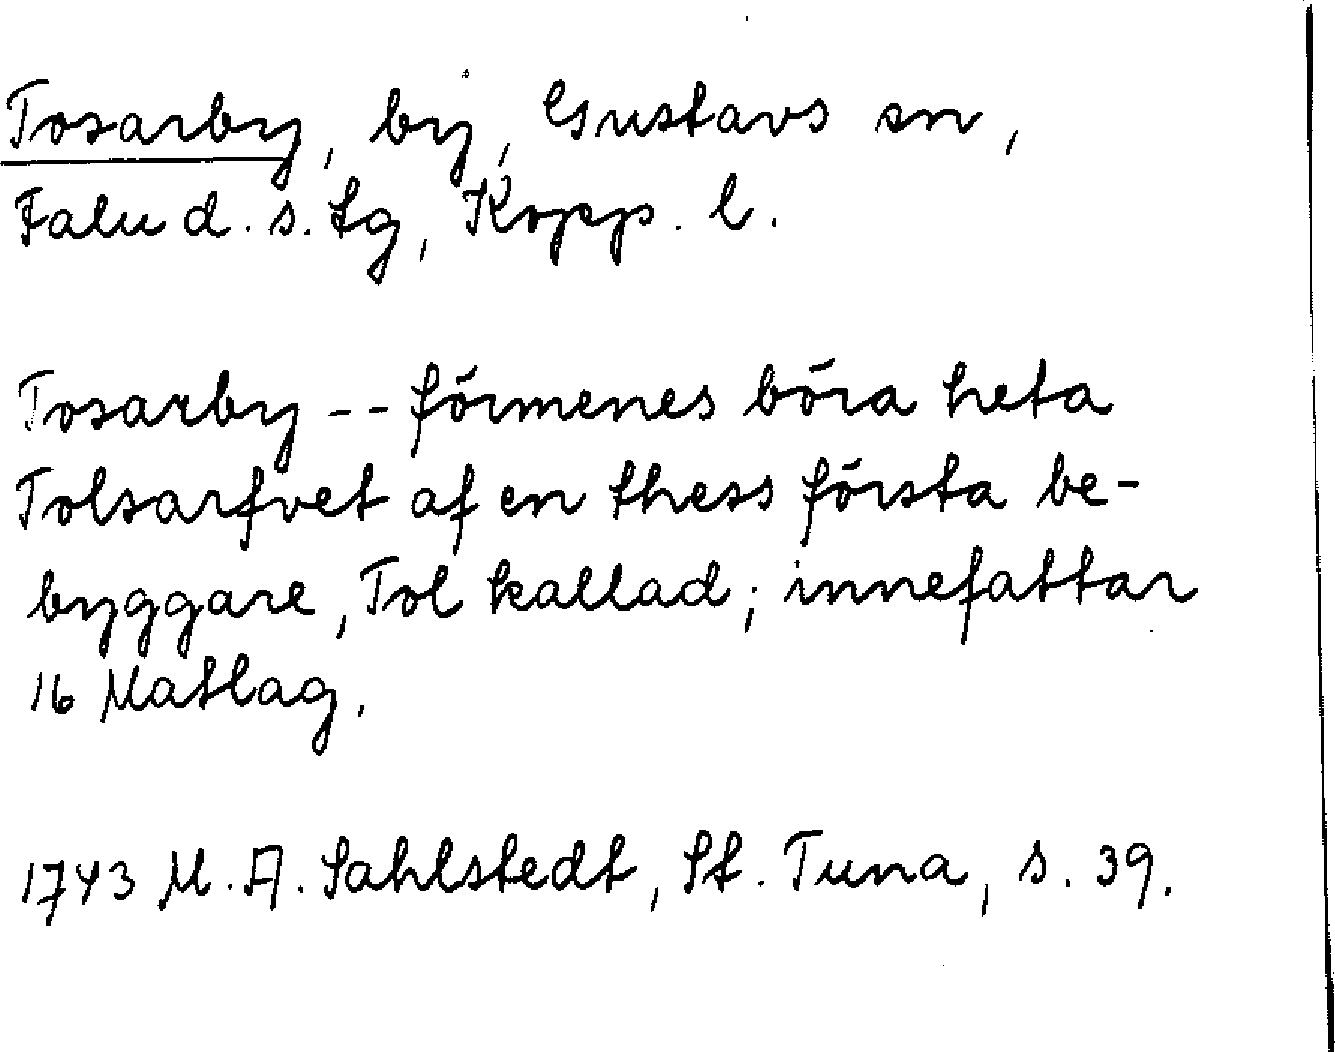 Tosarby, by, Gustavs sn,
Falu d. s. tg, Kopp. l.
Tosarby -- förmenes böra heta
Tolsarfvet af en thess första be-
byggare, Tol kallad; innefattar
16 Matlag.
1743 M. A. Sahlstedt, St. Tuna, s. 39.